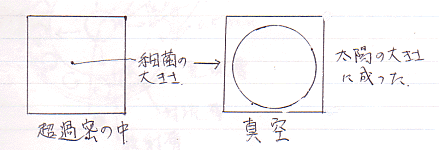 細菌の
大きさ
太陽の大きさ
に成った.
超過密の中
真空